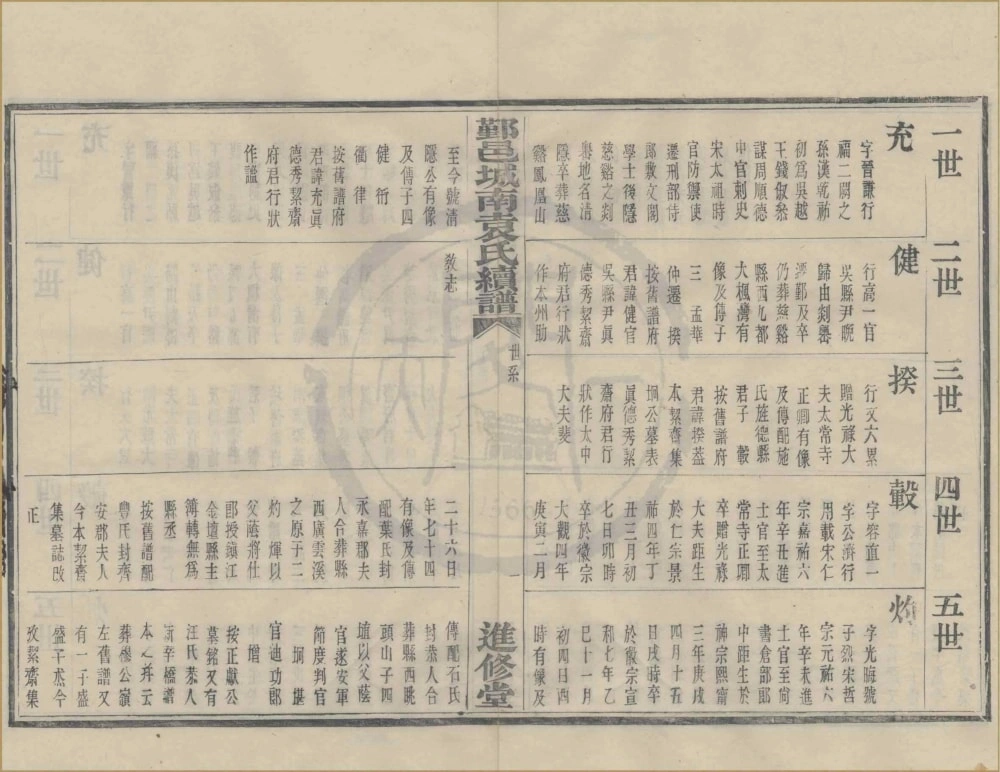 一世
充
字晉謙行
福二閩之
孫漢乾祐
初為吳越
王錢俶叅
謀周順德
中官刺史
宋太祖時
官防禦使
遷刑部侍
郎敷文閣
學士後隱
慈谿之剡
嶴地名清
隱卒葬慈
谿鳳凰山
至今號清
隱公有像
及傳子四
健 衍
衢 律
按舊譜府
君諱充眞
德秀絜齋
府君行狀
作謐
二世
健
行高一官
吳縣尹晄
歸由剡嶴
遷鄞及卒
仍葬慈谿
縣西九都
大楓灣有
像及傳子
三 孟華
仲遷 揆
按舊譜府
君諱健官
吳縣尹眞
德秀絜齋
府君行狀
作本州助
敎志
三世
揆
行文六累
贈光祿大
夫太常寺
正卿有像
及傳配施
氏旌德縣
君子 轂
按舊譜府
君諱揆蓋
太絜齋集
垌公墓表
眞德秀絜
齋府君行
狀作太中
大夫棐
四世
轂
字容直一
字公濟行
用載宋仁
宗嘉祐六
年辛丑進
士官至太
常寺正卿
卒贈光祿
大夫距生
於仁宗景
祐四年丁
丑三月初
七日卯時
卒於徽宗
大觀四年
庚寅二月
二十六日
年七十四
有像及傳
配葉氏封
永嘉郡夫
人合葬縣
西廣雲溪
之原子二
灼 燀以
父蔭將仕
郎授鎮江
金壇縣主
簿轉無為
縣丞
按舊譜配
豐氏封齊
安郡夫人
今本絜齋
集墓誌改
正
五世
灼
字光晦號
子烈宋哲
宗元祐六
年辛未進
士官至尚
書倉部郎
中距生於
神宗熙甯
三年庚戌
四月十五
日戌時卒
於徽宗宣
和七年乙
巳十一月
初四日酉
時有像及
傳配石氏
封恭人合
葬縣西眺
頭山子四
埴以父蔭
官遂安軍
節度判官
三 垌 堪
官迪功郎
增
按正獻公
墓銘又有
汪氏恭人
新莘橋譜
本之并云
葬穆公嶺
左舊譜又
有一子盛
盛子烝今
攷絜齋集
鄞邑城南袁氏續譜
世系
一
進修堂